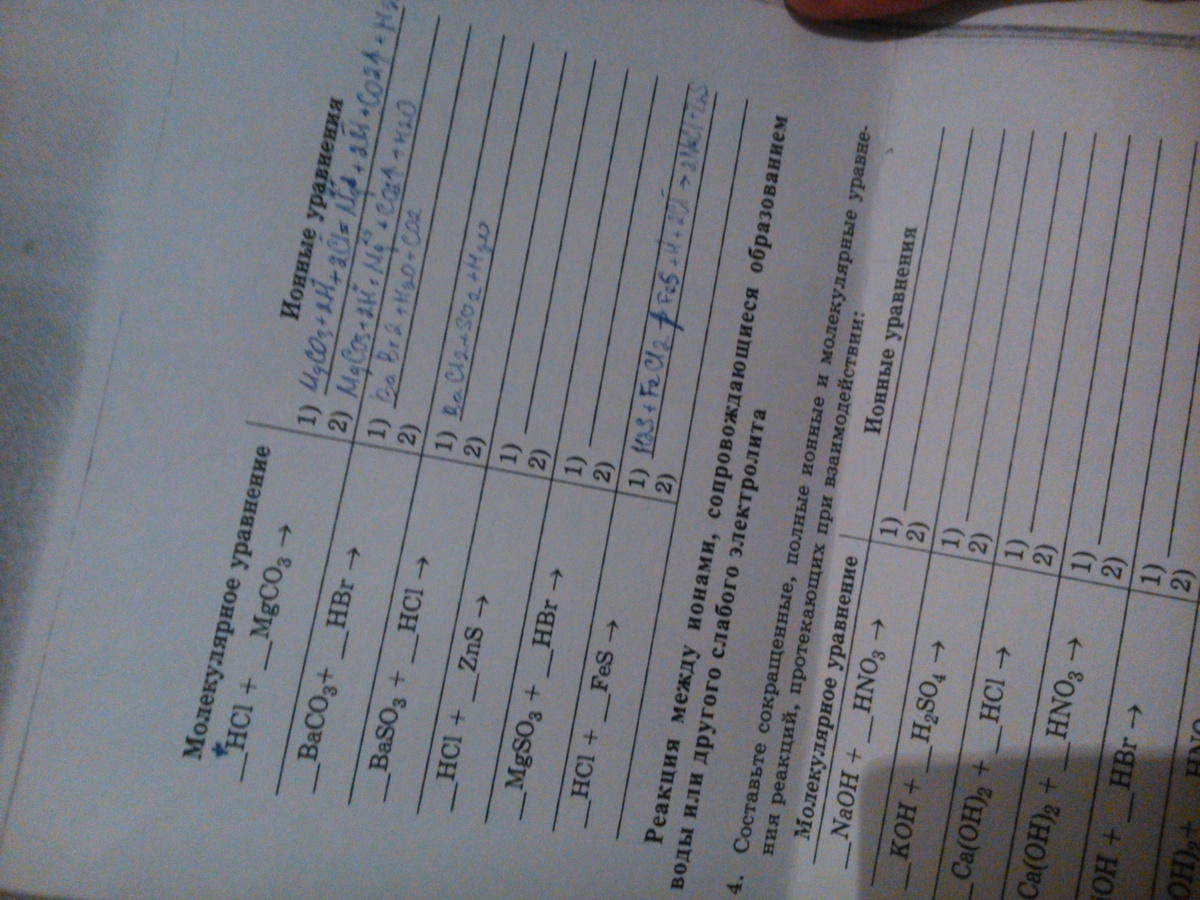 Молекулярное уравнение
Ионные уравнения
__HCl + __MgCO₃ →
1) MgCO3+2H⁺+2Cl⁻=Mg²⁺+2Cl⁻+CO2↑+H2
2) MgCO3+2H⁺=Mg²⁺+CO2↑+H2O
__BaCO₃+ __HBr →
1) BaBr2+H2O+CO2
2)
__BaSO₃ + __HCl →
1) BaCl2+SO2+H2O
2)
__HCl + __ZnS →
1)
2)
__MgSO₃ + __HBr →
1)
2)
__HCl + __FeS →
1) H2S+FeCl2
2)
Реакция между ионами, сопровождающиеся образованием
воды или другого слабого электролита
4. Составьте сокращенные, полные ионные и молекулярные уравне-
ния реакций, протекающих при взаимодействии:
Молекулярное уравнение
Ионные уравнения
__NaOH + __HNO₃ →
1)
2)
__KOH + __H₂SO₄ →
1)
2)
__Ca(OH)₂ + __HCl →
1)
2)
Ca(OH)₂ + __HNO₃ →
1)
2)
OH + __HBr →
1)
2)
OH)₂+